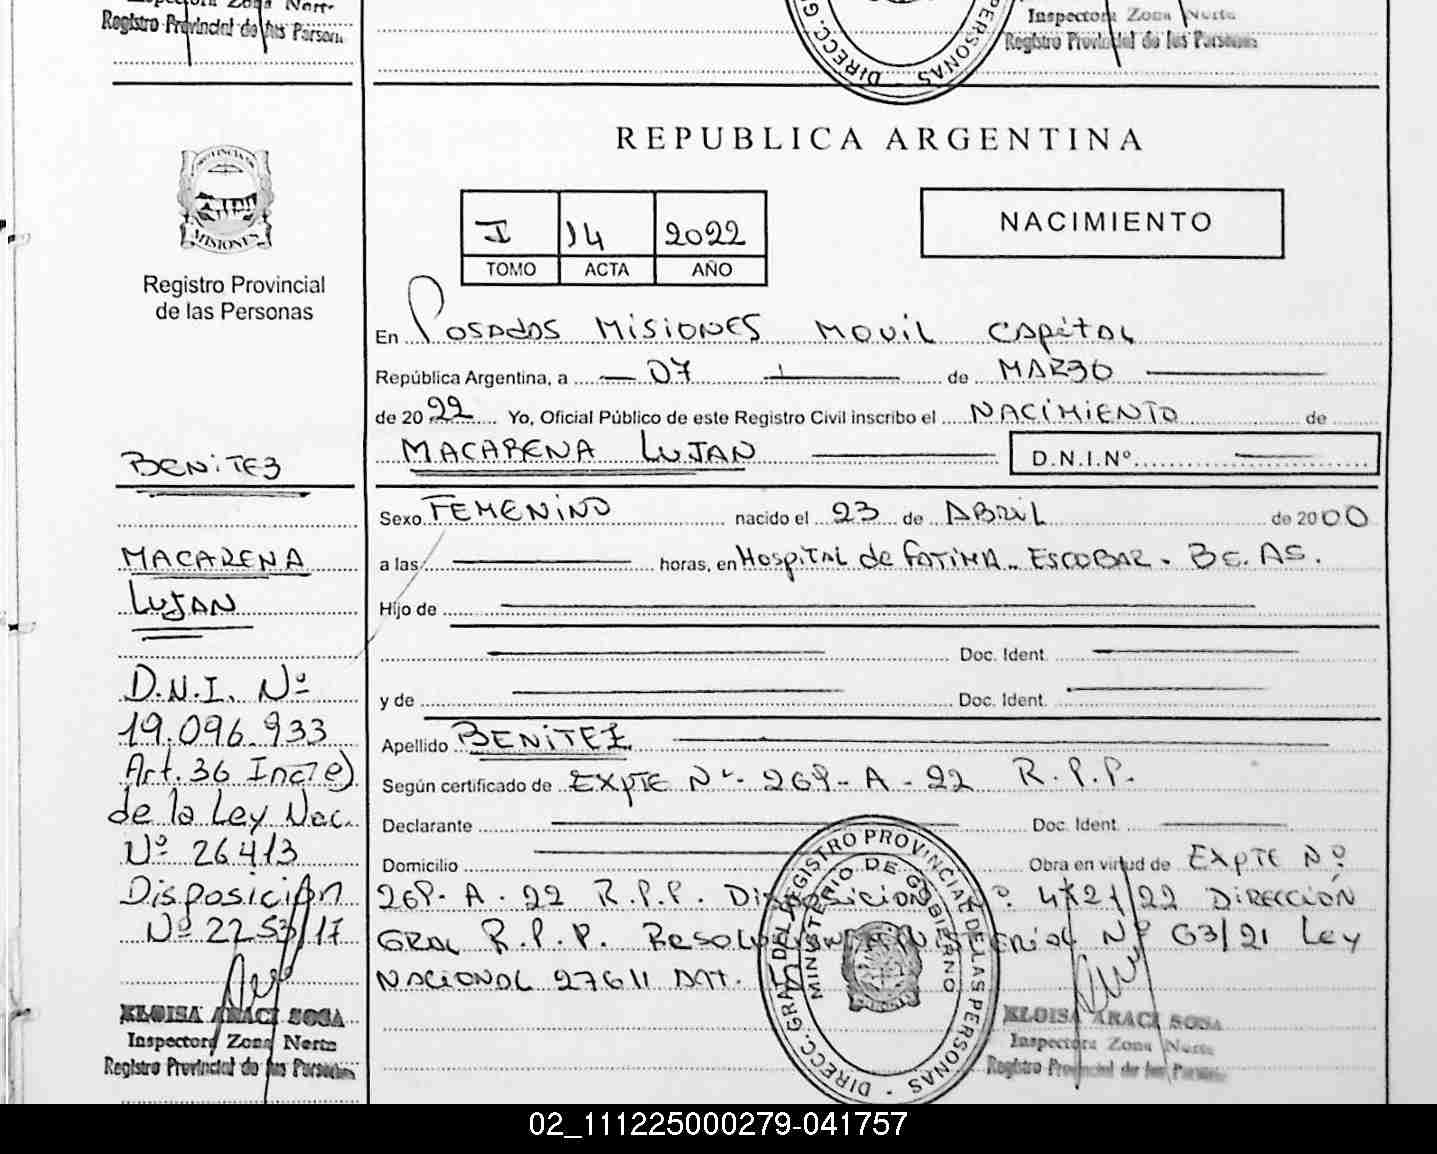 Inspectora Zona Norte
Registro Provincial de las Personas
DIRECC. G PERSONAS
Inspectora Zona Norte
Registro Provincial de las Personas
REPUBLICA ARGENTINA
PROVINCIA DE
MISIONES
Registro Provincial
de las Personas
I 14 2022
TOMO ACTA AÑO
NACIMIENTO
En Posadas Misiones Movil Capital
República Argentina, a 07 de MARZO
de 2022 Yo, Oficial Público de este Registro Civil inscribo el NACIMIENTO de
MACARENA LUJAN D.N.I.Nº
BENITEZ
Sexo FEMENINO nacido el 23 de ABRIL de 2000
MACARENA
LUJAN
a las horas, en Hospital de Fatima. Escobar. BS. AS.
Hijo de
Doc. Ident.
y de Doc. Ident.
D.N.I. Nº
19.096.933
Art. 36 Inc e)
de la Ley Nac.
Nº 26413
Disposición
Nº 2253/17
Apellido BENITEZ
Según certificado de EXPTE Nº 269-A-22 R.P.P.
Declarante Doc. Ident.
Domicilio Obra en virtud de EXPTE Nº
269-A-22 R.P.P. Disposición Nº 22 Dirección
GRAL R.P.P. Resolución Ministerial Nº 63/21 Ley
NACIONAL 27611 Art.
DIRECC. GRAL DEL REGISTRO PROVINCIAL DE LAS PERSONAS
MINISTERIO DE GOBIERNO
ELOISA ARACI SOSA
Inspectora Zona Norte
Registro Provincial de las Personas
ELOISA ARACI SOSA
Inspectora Zona Norte
Registro Provincial de las Personas
02_111225000279-041757